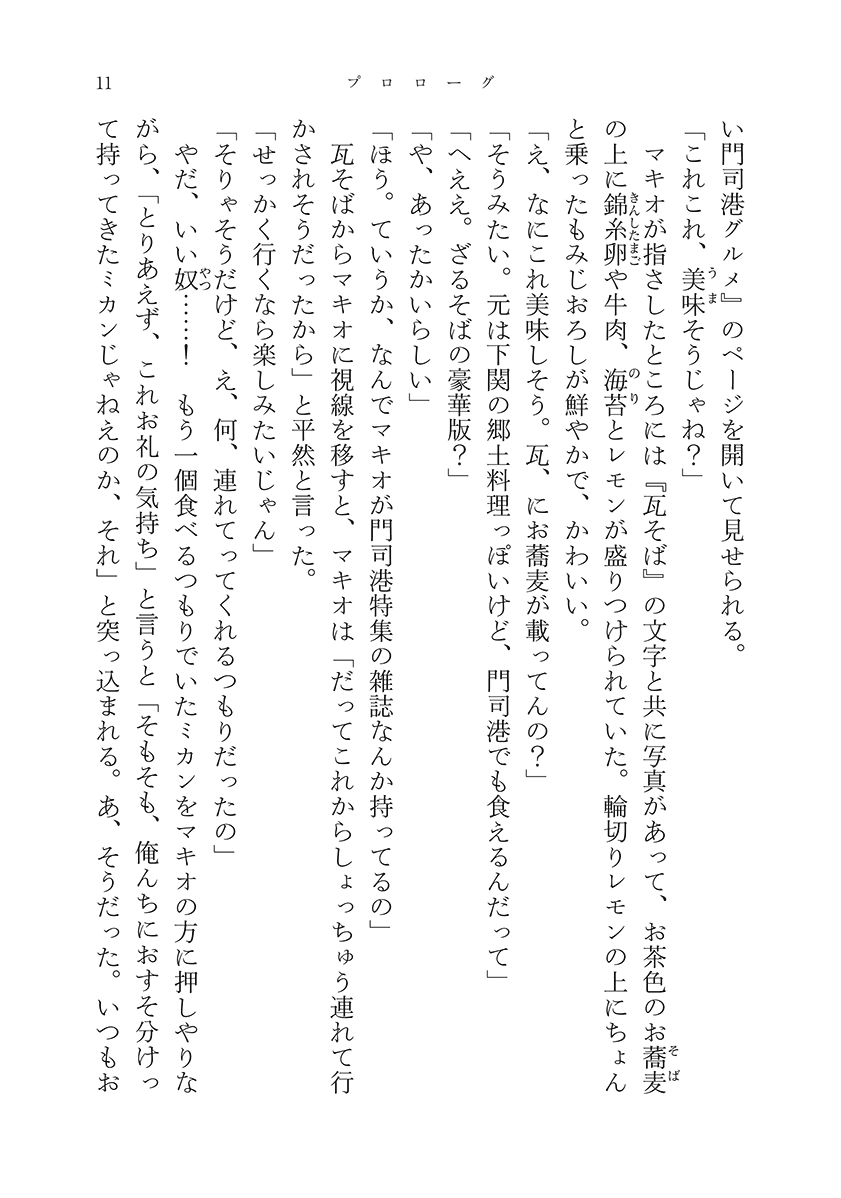 11
プロローグ
い門司港グルメ』のページを開いて見せられる。
「これこれ、美味そうじゃね？」
　マキオが指さしたところには『瓦そば』の文字と共に写真があって、お茶色のお蕎麦
の上に錦糸卵や牛肉、海苔とレモンが盛りつけられていた。輪切りレモンの上にちょん
と乗ったもみじおろしが鮮やかで、かわいい。
「え、なにこれ美味しそう。瓦、にお蕎麦が載ってんの？」
「そうみたい。元は下関の郷土料理っぽいけど、門司港でも食えるんだって」
「へええ。ざるそばの豪華版？」
「や、あったかいらしい」
「ほう。ていうか、なんでマキオが門司港特集の雑誌なんか持ってるの」
　瓦そばからマキオに視線を移すと、マキオは「だってこれからしょっちゅう連れて行
かされそうだったから」と平然と言った。
「せっかく行くなら楽しみたいじゃん」
「そりゃそうだけど、え、何、連れてってくれるつもりだったの」
　やだ、いい奴……！　もう一個食べるつもりでいたミカンをマキオの方に押しやりな
がら、「とりあえず、これお礼の気持ち」と言うと「そもそも、俺んちにおすそ分けっ
て持ってきたミカンじゃねえのか、それ」と突っ込まれる。あ、そうだった。いつもお